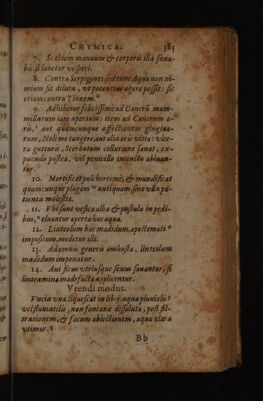 CHYMICA. 385
7. Scabiem manuum & corporis illa sana-
bis, si lauetur vesperi.
8. Contra Serpigines sed tunc Aqua non ni-
mium sit diluta, vt potentius agere possit: sic
etiam contra Tineam.
9. Adhibetur felicissimè ad Cancrū mam-
millarum iam apertum: item ad Cancrum o-
ris, aut quamcunque affectionem gingiua-
rum, Noli me tangere, aut alia oris vitia: vlce-
ra gutturis, Scorbutum collutione sanat, ex-
puendo postea, vel penicillo intincto abluan-
tur.
10. Mortificat pulcherrimè, & mundificat
quamcunque plagam antiquam, sine vlla pa-
tientis molestia.
11. Vbi sunt vesicæ alba & pustula in pedi-
bus, eluantur aperta hac aqua.
12. Linteolum hac madidum, apostemati
impositum, medetur illi.
13. Adomnis generis ambusta, linteolum
madidum imponatur.
14. Ani ficus vtriusque sexus sanantur, si
linteamina madefacta applicentur.
Vtendi modus.
Vncia vna liquescat in lib. j. aquæ pluuialis
vel fluuiatilis, non fontana dissoluta, post fil-
trationem, & fæcum abiectionem, aqua clara
vtimur.
Bb